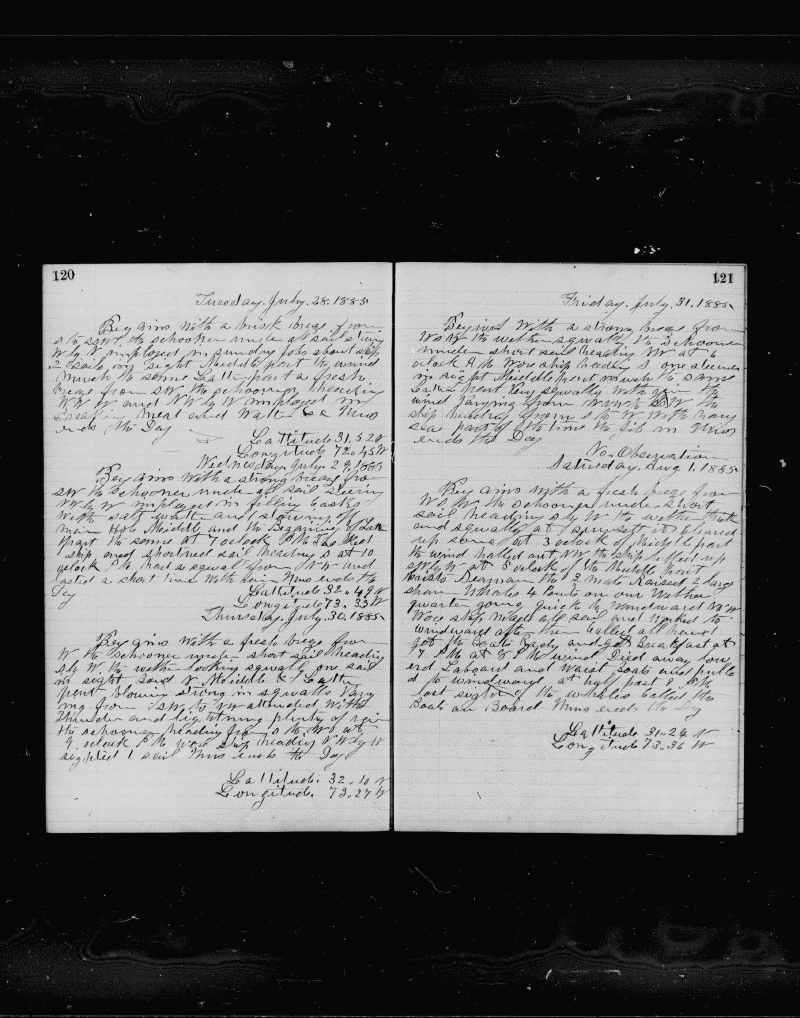 120
Tuesday. July. 28. 1885
Beg ains With a brisk breze from
S to SSW. the schooner under all sail stering
W by N. imployed in sunday jobs about ship
2 sails in sight Middle part the wind
much the same Latter part a fresh
breze from SW the schooner stearing
NW and NW by W imployed in
Breaking meat and Watter &c Thus
ends the Day
Lattitude 31.. 52 N
Longitude 72.. 45 W
Wednesday July. 29. 1885
Beg ains With a strong breze from
SW the schooner under all sail stering
NW by W imployed in filling Casks
With salt Watter and stowing
main Hole Middle and the Beggining of Latter
part the same at 7 oclock
ship and shortned sail heading S at 10
oclock P M had a squal from NW and
lasted a short time With rain Thus ends the
Day
Lattitude 32.. 49 N
Longitude 73.. 33 W
Thursday. July. 30. 1885
Beg ains With a fresh breze from
W the schooner under short sail heading
S by W. the wether looking squaly one sail
in sight Middle & Latter
part blowing strong in squalls Vary
ing from SW to NW attended With
thunder and lightning plenty of rain
the schooner heading from S to W at
9. oclock P M Wore Ship heading NW by W
sighted 1 sail Thus ends the Day
Lattitude. 32.. 10 N
Longitude. 73.. 27 W
121
Friday. July. 31. 1885
Begins With a strong breze from
the wether squaly the Schooner
under short sail heading NW at 6
oclock A M Wore ship heading S one steamer
in sight Middle part much the same
Latter part Very squaly With rain the
wind Varying from the
ship heading from S to W With heavy
sea part of the time the Jib in Thus
ends the Day
No.. Observation
Saturday. Aug 1. 1885
Beg ains With a fresh breze from
the schooner under short
sail heading S by W the wether thick
and squaly at sunsett it cleared
up some at 3 oclock of Middle part
the wind halled out NW the ship
SW by W at 5 oclock of the Middle part
the 3 mate Raised 2 large
sparm Whales 4 Points on our Wether
quarter going quick to Windward
Wore ship maid all sail and Worked to
Windward after them called all hands
got the boats Ready and got Breakfast at
7 P M at 8 P M the wind Died away low
erd Laboard and Waist boats and pulle
d to windward, at half past 9 P M
lost sight of the whales called the
Boats on Board Thus ends the Day
Lattitude 31.. 24 N
Longitude 73.. 36 W